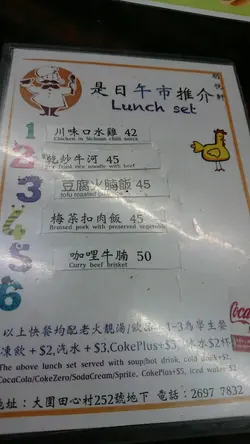 是日午市推介
Lunch set
1 川味口水雞 42
Chicken in Sichuan chili sauce
2 乾炒牛河 45
Fried rice noodle with beef
3 豆腐火腩飯 45
tofu roasted
4 梅菜扣肉飯 45
Braised pork with preserved vegetable
5 咖哩牛腩 50
Curry beef brisket
6
以上快餐均配老火靚湯/飲品 1-3為學生餐
凍飲+$2,汽水+$3,CokePlus+$5 冰水$2杯
The above lunch set served with soup/hot drink, cold drink+$2,
CocaCola/CokeZero/SodaCream/Sprite, CokePlus+$5, iced water $2
地址: 大圍田心村252號地下 電話: 2697 7832